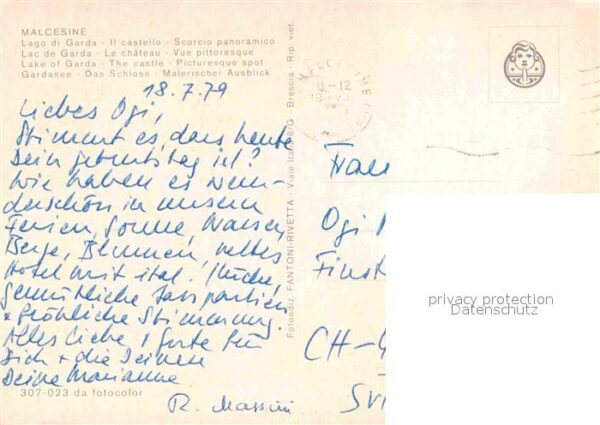 MALCESINE
Lago di Garda - Il castello - Scorcio panoramico
Lac de Garda - Le château - Vue pittoresque
Lake of Garda - The castle - Picturesque spot
Gardasee - Das Schloss - Malerischer Ausblick
18.7.79
Liebes Ogi,
Stimmt es, dass heute
Dein Geburtstag ist?
Wir haben es wun-
derschön in unsern
Ferien, Sonne, Wasser,
Berge, Blumen, nettes
Hotel mit ital. Küche,
gemütliche Jasspartien
+ fröhliche Stimmung.
Alles Liebe + Gute für
Dich + die Deinen
Deine Marianne
R. Massini
307-023 da fotocolor
Fotoediz. FANTONI-RIVETTA - Viale Italia - Brescia - Rip. viet.
MALCESINE
Frau
Ogi
CH-
privacy protection
Datenschutz